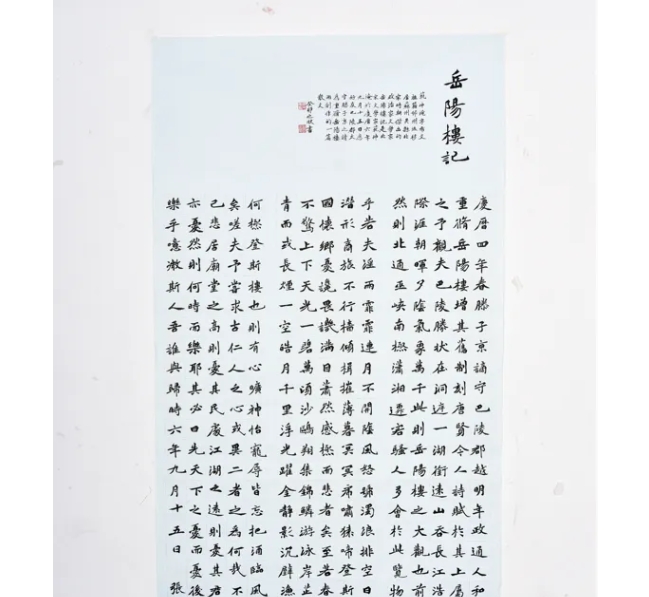 岳陽樓記
慶曆四年春滕子京謫守巴陵郡越明年政通人和
重脩岳陽樓增其舊制刻唐賢今人詩賦於其上屬
之予觀夫巴陵勝狀在洞庭一湖銜遠山吞長江浩
際涯朝暉夕陰氣象萬千此則岳陽樓之大觀也前
然則北通巫峽南極瀟湘遷客騷人多會於此覽物
乎若夫淫雨霏霏連月不開陰風怒號濁浪排空日
潛形商旅不行檣傾楫摧薄暮冥冥虎嘯猿啼登斯
國懷鄉憂讒畏譏滿目蕭然感極而悲者矣至若春
不驚上下天光一碧萬頃沙鷗翔集錦鱗游泳岸芷
青而或長煙一空皓月千里浮光躍金靜影沉璧漁
何極登斯樓也則有心曠神怡寵辱皆忘把酒臨風
矣嗟夫予嘗求古仁人之心或異二者之為何哉不
己悲居廟堂之高則憂其民處江湖之遠則憂其君
亦憂然則何時而樂耶其必曰先天下之憂而憂後
樂乎噫微斯人吾誰與歸時六年九月十五日 張